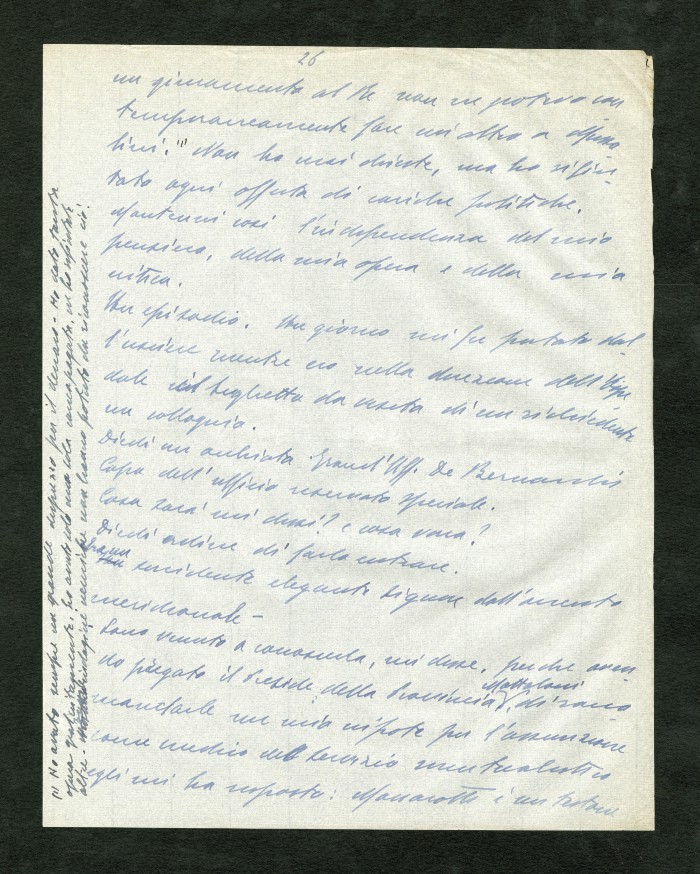 26
un giuramento al Re non ne potevo con
temporaneamente fare un altro a Musso
lini. (1) Non ho mai chieste, ma ho rifiu
tato ogni offerta di cariche politiche.
Mantenni così l'indipendenza del mio
pensiero, della mia opera e della mia
critica.
Un episodio. Un giorno mi fu portato dal
l'usciere mentre ero nella direzione dell'Ospe
dale il biglietto da visita di un richiedente
un colloquio.
Diedi un'occhiata. Grand'Uff. De Bernardis
Capo dell'ufficio riservato speciale.
Cosa sarà mi dissi? e cosa vorrà?
Diedi ordine di farlo entrare.
Era un sorridente elegante signore dall'accento
meridionale -
Sono venuto a conoscerla, mi disse, perché aven
do pregato il Preside della Provincia Mattoloni di racco
mandarle un mio nipote per l'assunzione
come medico del servizio
egli mi ha risposto: Massarotti è un testone
(1) Ho avuto sempre un grande disprezzo per il denaro - Ho dato tanta
opera gratuitamente; ho avuto solo una sola ricompensa:
altre. non hanno potuto da riconoscere ciò.